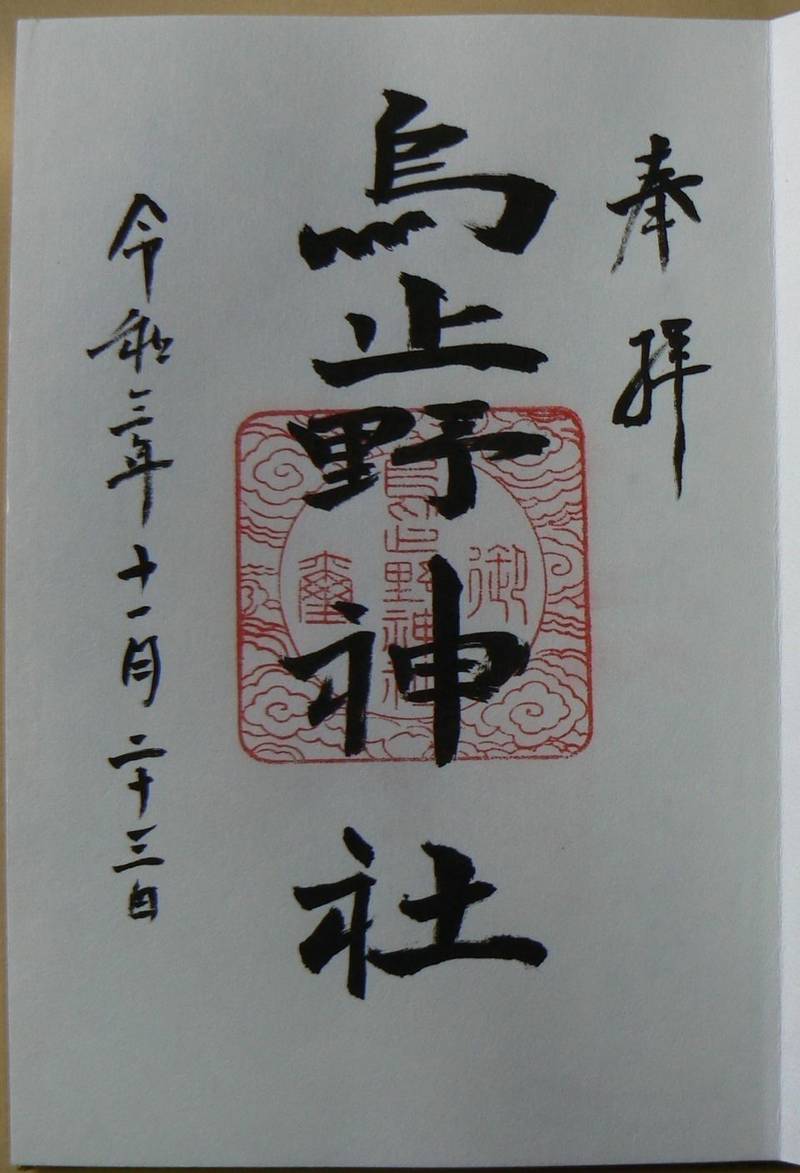 奉拝
烏止野神社
御
烏止野神社
璽
令和三年十一月二十三日